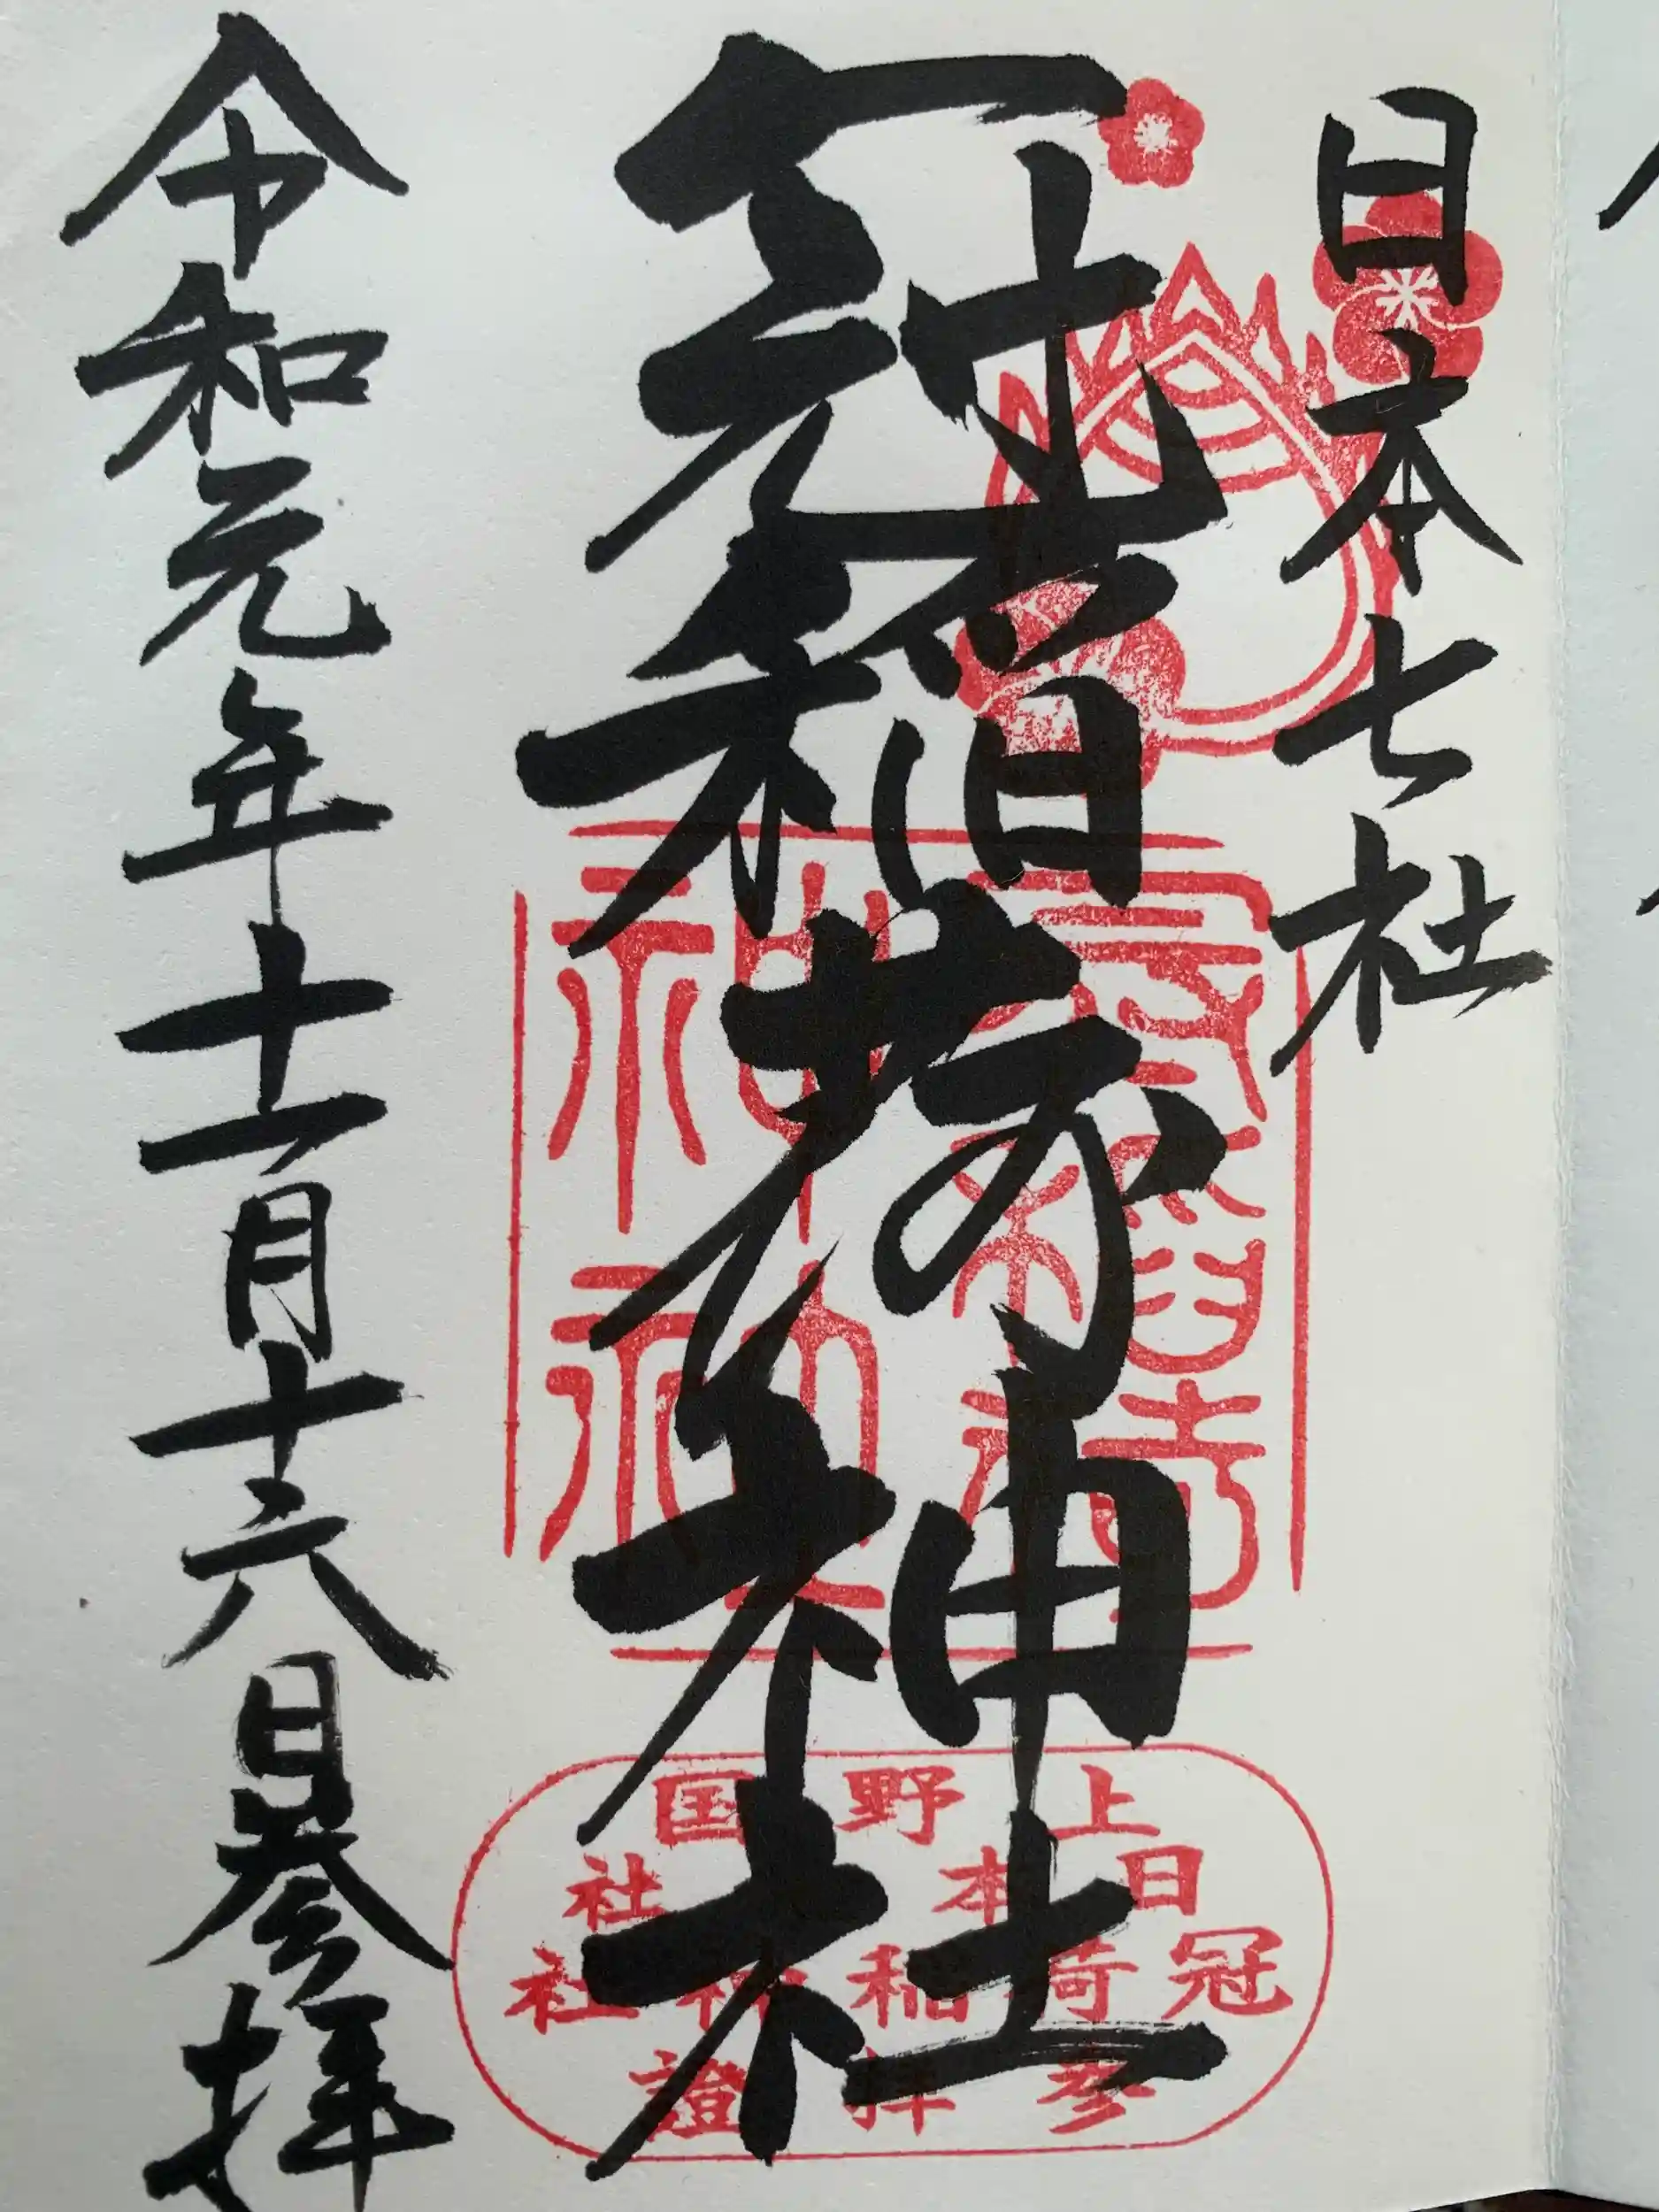 日本七社
冠稲荷神社
令和元年十一月十六日参拝
上野国
日本七社
冠稲荷神社
参拝證